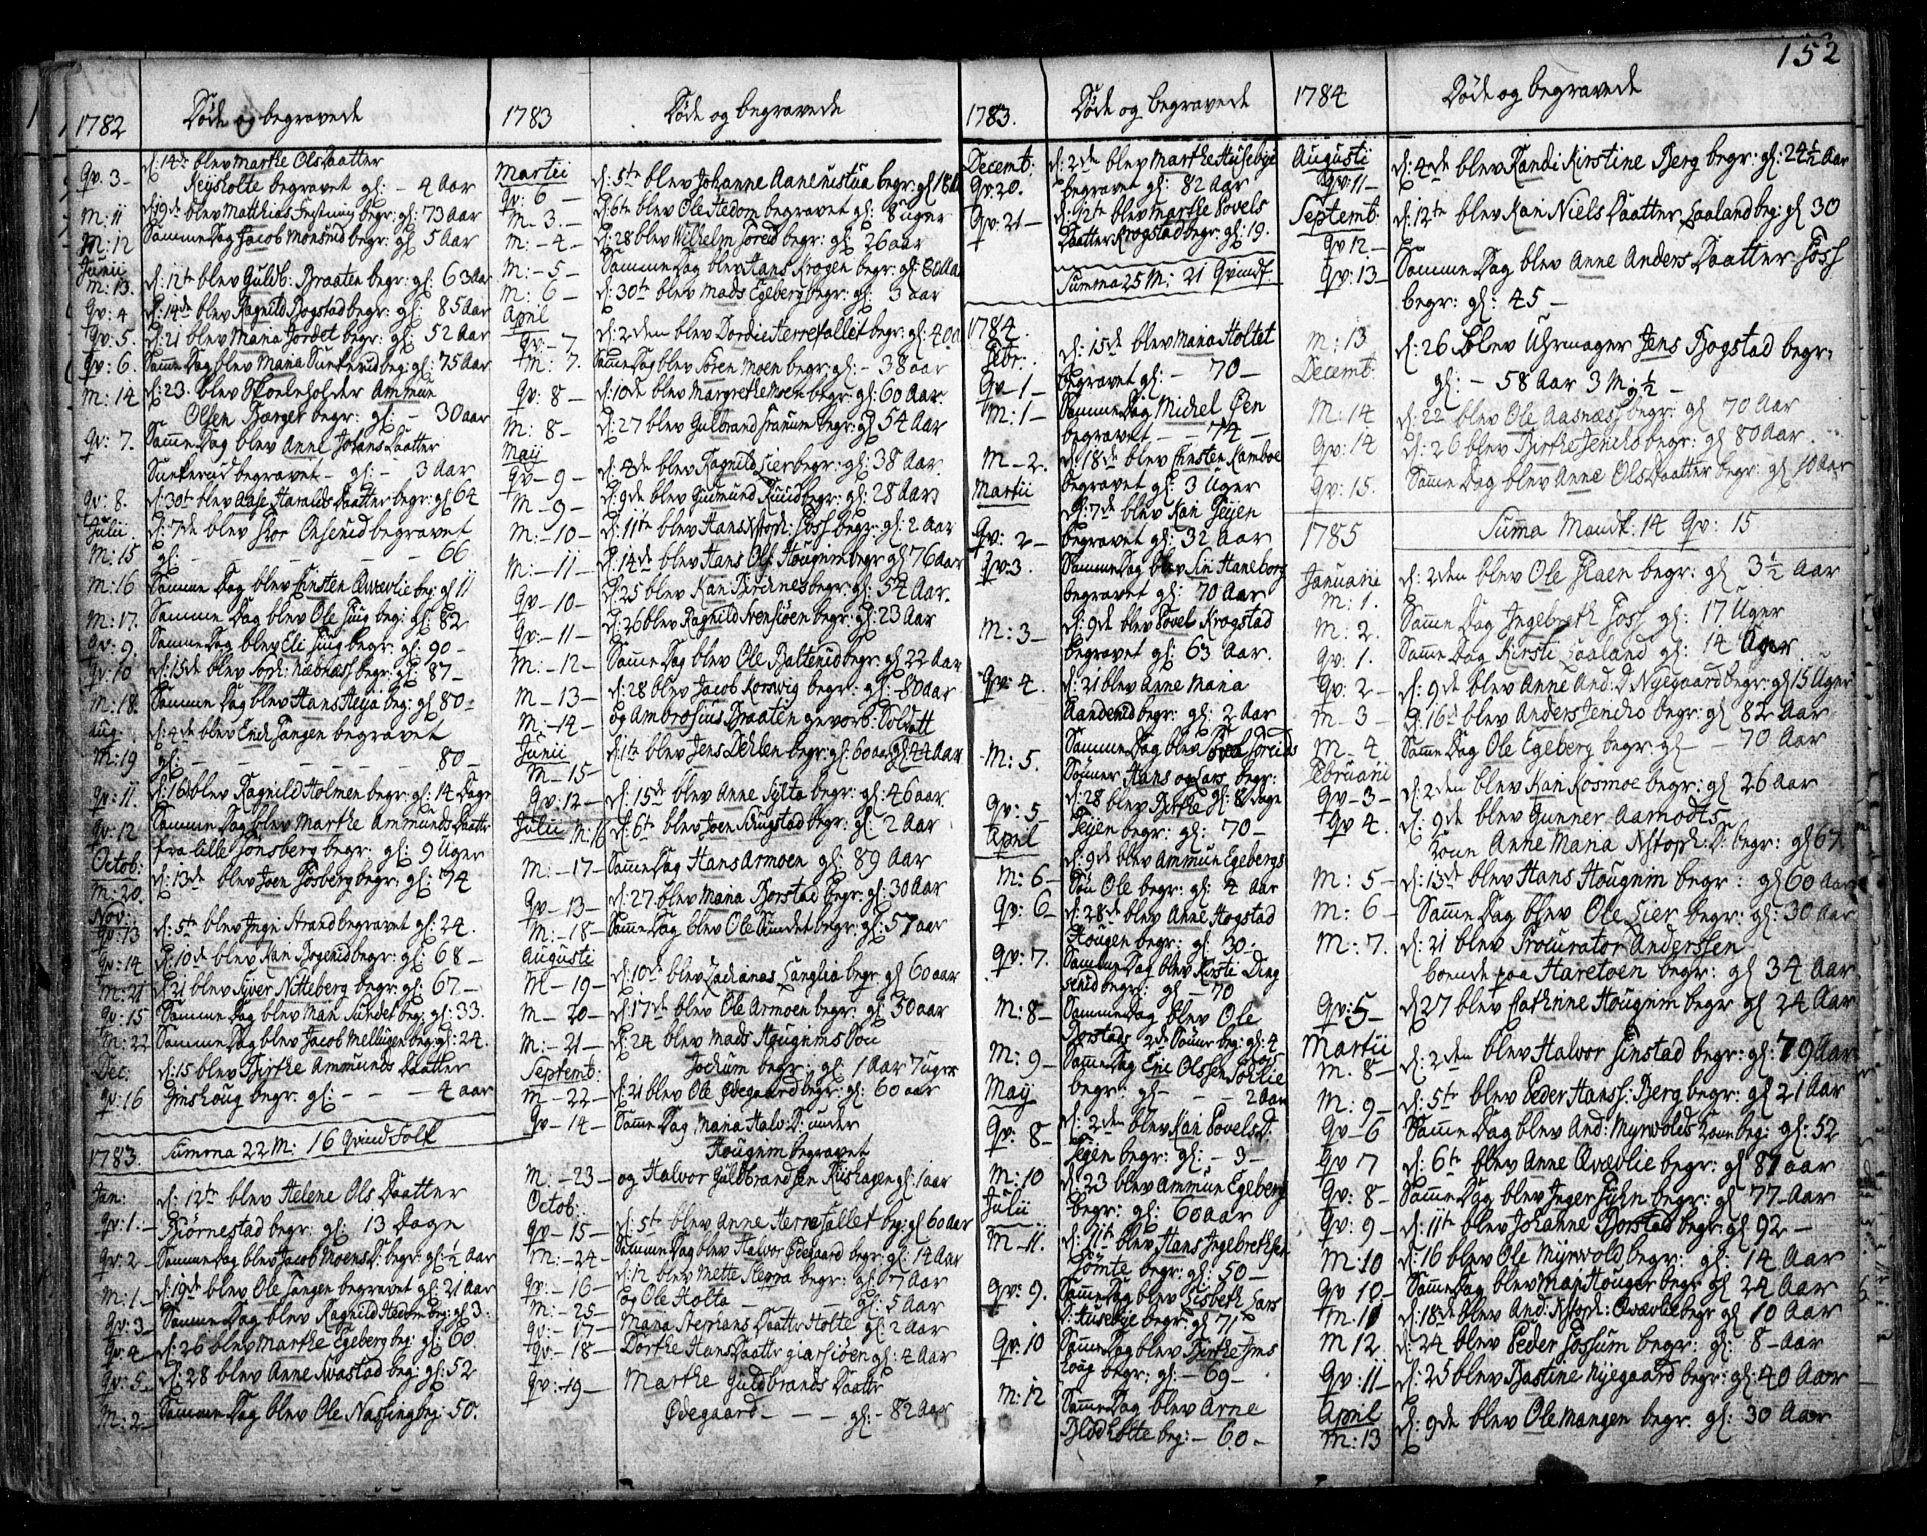 152
1782
Døde og begravede
Qv. 3 d: 14de blev Marthe Ols Daatter
Keysholte begravet gl: - 4 Aar
M: 11 d: 19de blev Matthias Festning begr: gl: 73 Aar
M: 12 Samme Dag Jacob Monsrud begr: gl 5 Aar
Junii
M: 13. d: 12te blev Guldb: Braaten begr: gl: 63 Aar
Qv: 4 d: 14de blev Ragnild Bogstad begr: gl: 85 Aar
Qv: 5. d: 21 blev Maria Jordet begr: gl: 52 Aar
Qv: 6. Samme Dag blev Maria beg: gl: 75 Aar
M: 14 d: 23. blev Skoleholder Ammun
Olsen Berger begr: gl: - 30 aar
Qv: 7. Samme Dag blev Anne Johans Daatter
begravet - gl: - 3 Aar
Qv: 8. d: 30te blev Aase Haralds Daatter begr: gl 64
Julii d: 7de blev begravet
M: 15 gl: - - - 66
M: 16 Samme Dag blev Christen beg: gl 11
M: 17. Samme Dag blev Ole beg: gl: 82
Qv: 9. Samme Dag blev Eli begr: gl: 90 -
Qv: 10 d: 15de blev Næbnæss begr: gl: 87 -
M: 18. Samme Dag blev Hans Heija beg: gl 80 -
Aug: d: 4de blev Erich Sangen begravet
M: 19 gl: - - - 80 -
Qv: 11. d: 16 blev Ragnild Holmen begr: gl: 14 Dage
Qv: 12 Samme Dag blev Marthe Ammunds Daatter
fra Lille Jonsberg begr: gl: 9 Uger
Octob:
M: 20. d: 13de blev Joen Fosberg begr: gl: 74
Nov:
Qv: 13 d: 5te blev Inge Strand begravet gl: 24.
Qv: 14 d: 10de blev Kari Bogerud begr: gl: 68 -
M: 21 d: 21 blev Siver Nitteberg begr: gl: 67 -
Qv: 15 Samme Dag blev Mari Sundet beg: gl: 33.
M: 22 Samme Dag blev Jacob Mellingen beg: gl: 24.
Dec: d: 15 blev Birthe Ammunds Daatter
Qv: 16 Gimshoug begr: gl: - - - 4 aar
Summa 22 M: 16 Qvindfolk
1783.
Jan: d: 12te blev Helene Ols Daatter
Qv: 1. - Biørnestad begr: gl: 13 Dage
Qv: 2 - Samme Dag blev Jacob Moens D. begr: gl: ½ Aar
M: 1 - d: 19de blev Ole Sangen begravet gl: 21 Aar
Qv: 3 - Samme Dag blev Ragnild Hedom beg: gl 3.
Qv: 4 d: 26 blev Marthe Egeberg beg: gl 60
Qv: 5 - d: 28 blev Anne beg: gl: 52
M: 2 - Samme Dag blev Ole Nassing beg: 50.
1783
Døde og begravede
Martii
Qv: 6 - d: 5te blev Johanne Aanerustua begr: gl 18 Aar
M: 3 - d: 6te blev Ole Hedom begravet gl: 8 uger
M: - 4 - d: 28 blev Wilhelm Foreid begr: gl: 26 aar
M: - 5 - Samme Dag blev Hans Krogen begr: gl: 80 Aar
M: 6 - d: 30te blev Mads Egeberg begr: gl: 3 aar
April
Qv - 7 d: 2den blev Dordie Herrefallet begr: gl: 40
M: 7. Samme Dag blev Søren Moen begr: gl: - 38 aar
Qv: 8 - d: 10de blev Margrethe Moen begr: gl: 60 Aar.
M: 8 - d: 27 blev Gulbrand Franum begr: gl 54 Aar
Maij
Qv - 9 - d: 4de blev Ragnild Lier begr: gl: 38 Aar.
M - 9 - d: 9de blev Gudmund Ruud begr: gl: 28 Aar
M - 10 - d: 11te blev Hans Foss begr: gl: 2 Aar
M: - 11 - d: 14de blev Hans Ols: Hougrim begr gl 76 aar
Qv - 10 - d: 25 blev Kari begr: gl: 54 Aar.
Qv: - 11 - d: 26 blev Ragnild begr: gl: 23 Aar
M: - 12 - Samme Dag blev Ole begr: gl 22 Aar
M - 13 - d: 28 blev Jacob Korsvig begr: gl: - 80 aar
M: - 14 - og Ambrosius Braaten gevorb: Soldatt
gl 44 Aar
Junii
M - 15 - d: 1te blev Jens Dehlen begr: gl: 60 aar
Qv: 12 - d: 15de blev Anne begr: gl: 46 aar.
Julii M: 16 d: 6te blev Joen Ringstad begr: gl: 2 Aar
M: - 17 - Samme Dag Hans Armoen gl: 89 Aar
Qv - 13 - d: 27 blev Maria Borstad begr: gl: 30 Aar
M: - 18 - Samme Dag blev Ole Sundet begr: gl: 57 aar
Augusti
M - 19 - d: 10de blev Zacharias begr gl 60 aar
M - 20 - d: 17de blev Ole Armoen begr: gl 30 aar
M: - 21 - d: 24 blev Mads Hougrims Søn
Jochum begr: gl: 1 Aar 7 uger
Septemb:
M - 22 - d: 21 blev Ole Ødegaard begr: gl: 60 aar
Qv - 14 - Samme Dag Maria Halv: D: under
Hougrim begravet
M: - 23 - og Halvor Guldbrandsen gl: 1 aar
Octob:
Qv - 15 - d: 5te blev Anne Herrefallet beg: gl 60 Aar
M: - 24 - Samme Dag blev Halvor Ødegaard begr: gl: 14 Aar
Qv: - 16 - d: 12 blev Mette begr: gl: 7 Aar
M: - 25 - og Ole Holte - - gl: 5 Aar
Qv: - 17 - Maria Iverians Daatter Holte gl: 2 Aar
Qv: - 18 - Dorthe Hans Daatter gl: 4 Aar
Qv: - 19 - Marthe Guldbrands Daatter
Ødegaard - - - gl: - 82 Aar
1783.
Døde og begravede
Decemb:
Qv: 20. d: 2de blev Marthe Husebye
begravet gl: 82 Aar
Qv: 21 - d: 12te blev Marthe Povels
Daatter Krogstad begr: gl: 19.
Summa 25 M: 21 Qvindf.
1784.
Febr: d: 15de blev Maria Holtet
Qv - 1 - begravet gl: - 70 -
M: 1 - Samme Dag Michel Een
begravet - - 74 -
M - 2. d: 18de blev Christen Ramboe
begravet gl: 3 Uger
Martii d: 7de blev Kari Teijen
Qv: 2 - begravet gl: 32 Aar
Qv: 3. Samme Dag blev Siri Haneborg
begravet gl: 70 Aar
M: 3 - d: 9de blev Povel Krogstad
begravet gl: 63 Aar.
Qv: 4. d: 21 blev Anne Maria
Aanderud begr: gl: 2 Aar
M: 5. Samme Dag blev Foreids
Sønner Hans og Lars begr:
gl: 8 Dage
Qv: 5 d: 28 blev Birthe
Teijen begr: gl: 70 -
April d: 9de blev Ammun Egebergs
M: 6 - Søn Ole begr: gl: 4 Aar
Qv: 6 - d: 28de blev Anne Hogstad
Hougen begr: gl: 30 -
Qv: 7. Samme Dag blev Kirsti Ding
serud begr: gl - 70
M: 8 - Samme Dag blev Ole
Borstads 2de Sønner beg: gl: 4
M: 9 - Samme Dag Eric Olssen Sollie
begr: gl - - - 2 aar
May d: 2den blev Kari Povels D.
Qv: 8 - Teijen begr: gl: - 3 -
M: 10 d: 23 blev Ammun Egeberg
begr: gl: 60 aar
Julii
M - 11. d: 11te blev Hans Ingebrethsen
Tømte begr: gl: 50 -
Qv: 9. Samme Dag blev Lisbeth Lars
D: Husebye begr: gl 71 -
Qv: 10 Samme Dag blev Birthe Gims
houg begr: gl: - 69 -
M: 12 Samme Dag blev Arne
Blodholte beg: - 60 -
1784
Døde og begravede
Augusti
Qv: 11 - d: 4de blev Randi Kirstine Berg begr: gl: 24½ Aar
Septemb:
Qv 12 - d: 12te blev Kari Niels Daatter Haaland beg: gl 30
Qv: 13 - Samme Dag blev Anne Anders Daatter Foss
begr: gl: 45 -
M: 13 d: 26 blev Uhrmager Jens Bogstad begr:
gl: - 58 Aar 3 M: ½ -
Decemb:
M: 14 d: 22 blev Ole Aasnæss begr: gl 70 Aar
Qv: 14 d: 26 blev Birthe Jericho begr: gl 80 Aar.
Qv: 15. Samme Dag blev Anne Ols Daatter begr: gl 10 Aar
Suma Mandk: 14 Qv: 15
1785
Januarii d: 2den blev Ole Haen begr: gl 3½ Aar
M: 1.
M: 2. Samme Dag Ingebreth Foss gl: 17 Uger
Qv: 1. Samme Dag Kirsti Haaland gl: 14 Uger
Qv: 2 - d: 9de blev Anne And: D. Nyegaard begr: gl 15 Uger
M - 3 - d: 16de blev Anders Jericho begr: gl 82 Aar
M - 4 Samme Dag Ole Egeberg begr: gl - 70 Aar
Februarii
Qv - 3 - d: 2den blev Kari Kosmoe begr: gl 26 aar
Qv 4. d: 9de blev Gunner Aamodts
Kone Anne Maria D: begr: gl 67.
M: 5 - d: 13de blev Hans Hougrim begr: gl 60 Aar
M: 6 - Samme Dag blev Ole Lier begr: gl: 30 Aar
M: 7. d: 21 blev Procurator Anderssen
boende paa Haretoen begr: gl 34 Aar
Qv: 5 - d 27 blev Cathrine Hougrim begr gl 24 Aar
Martii
M. 8 - d: 2den blev Halvor Finstad begr: gl: 79 Aar
M: 9 - d: 5te blev Peder Hanss: Berg begr: gl 21 Aar
Qv - 6 Samme Dag blev And: Myrvolds Kone beg: gl: 52
Qv 7 d: 6te blev Anne Qvævlie begr: gl 87 aar
Qv: 8 - Samme Dag blev Inger begr: gl 77 Aar
Qv: 9 - d: 11te blev Johanne Borstad begr: gl 92 -
M: 10 d: 16 blev Ole Myrvold begr: gl: 14 Aar
Qv 10 - Samme Dag blev Mari Houger begr gl 24 Aar
M: 11 d: 18de blev And: Qvævlie begr gl 10 Aar
M 12. d: 24 blev Peder Fossum begr: gl: 8 - Aar
Qv: 11 - d: 25 blev Bastine Nyegaard begr: gl: 40 Aar
April
M: 13 d: 9de blev Ole Mangen begr: gl: 30 Aar